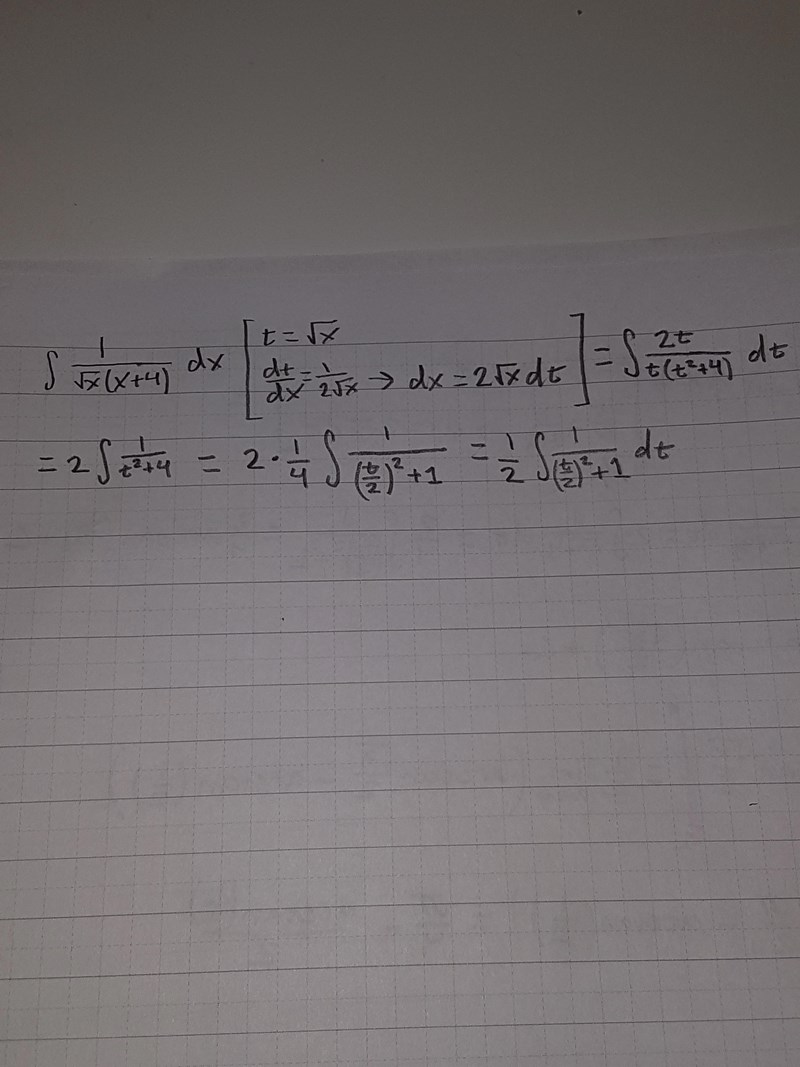 ∫ 1/(√x(x+4)) dx [t = √x; dt/dx = 1/(2√x) → dx = 2√x dt] = ∫ 2t/(t(t²+4)) dt
= 2∫ 1/(t²+4) = 2 · 1/4 ∫ 1/((t/2)²+1) = 1/2 ∫ 1/((t/2)²+1) dt